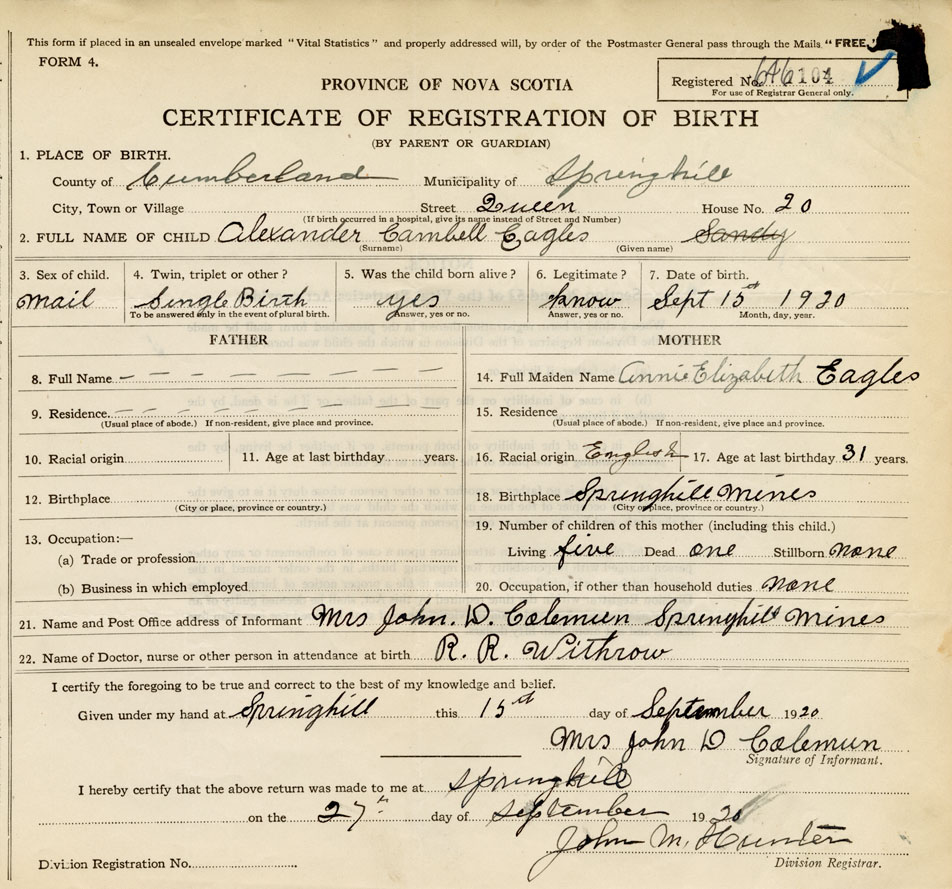 This form if placed in an unsealed envelope marked "Vital Statistics" and properly addressed will, by order of the Postmaster General pass through the Mails "FREE."
FORM 4.
Registered No. 104
For use of Registrar General only.
PROVINCE OF NOVA SCOTIA
CERTIFICATE OF REGISTRATION OF BIRTH
(BY PARENT OR GUARDIAN)
1. PLACE OF BIRTH.
County of Cumberland Municipality of Springhill
City, Town or Village Street Queen House No. 20
(If birth occurred in a hospital, give its name instead of Street and Number)
2. FULL NAME OF CHILD Alexander Cambell Eagles Sandy
(Surname) (Given name)
3. Sex of child. 4. Twin, triplet or other? 5. Was the child born alive? 6. Legitimate? 7. Date of birth.
Mail Single Birth yes know Sept 15 1920
To be answered only in the event of plural birth. Answer, yes or no. Answer, yes or no. Month, day, year.
FATHER MOTHER
8. Full Name 14. Full Maiden Name Annie Elizabeth Eagles
9. Residence 15. Residence
(Usual place of abode.) If non-resident, give place and province. (Usual place of abode.) If non-resident, give place and province.
10. Racial origin 11. Age at last birthday years. 16. Racial origin English 17. Age at last birthday 31 years.
12. Birthplace 18. Birthplace Springhill Mines
(City or place, province or country.) (City or place, province or country.)
13. Occupation:— 19. Number of children of this mother (including this child.)
(a) Trade or profession Living five Dead one Stillborn none
(b) Business in which employed 20. Occupation, if other than household duties none
21. Name and Post Office address of Informant Mrs John. D. Colemun Springhill Mines
22. Name of Doctor, nurse or other person in attendance at birth R. R. Withrow
I certify the foregoing to be true and correct to the best of my knowledge and belief.
Given under my hand at Springhill this 15 day of September 1920
Mrs John D Colemun
Signature of Informant.
I hereby certify that the above return was made to me at Springhill
on the 27th day of September 1920
John M. Hunter
Division Registrar.
Division Registration No.